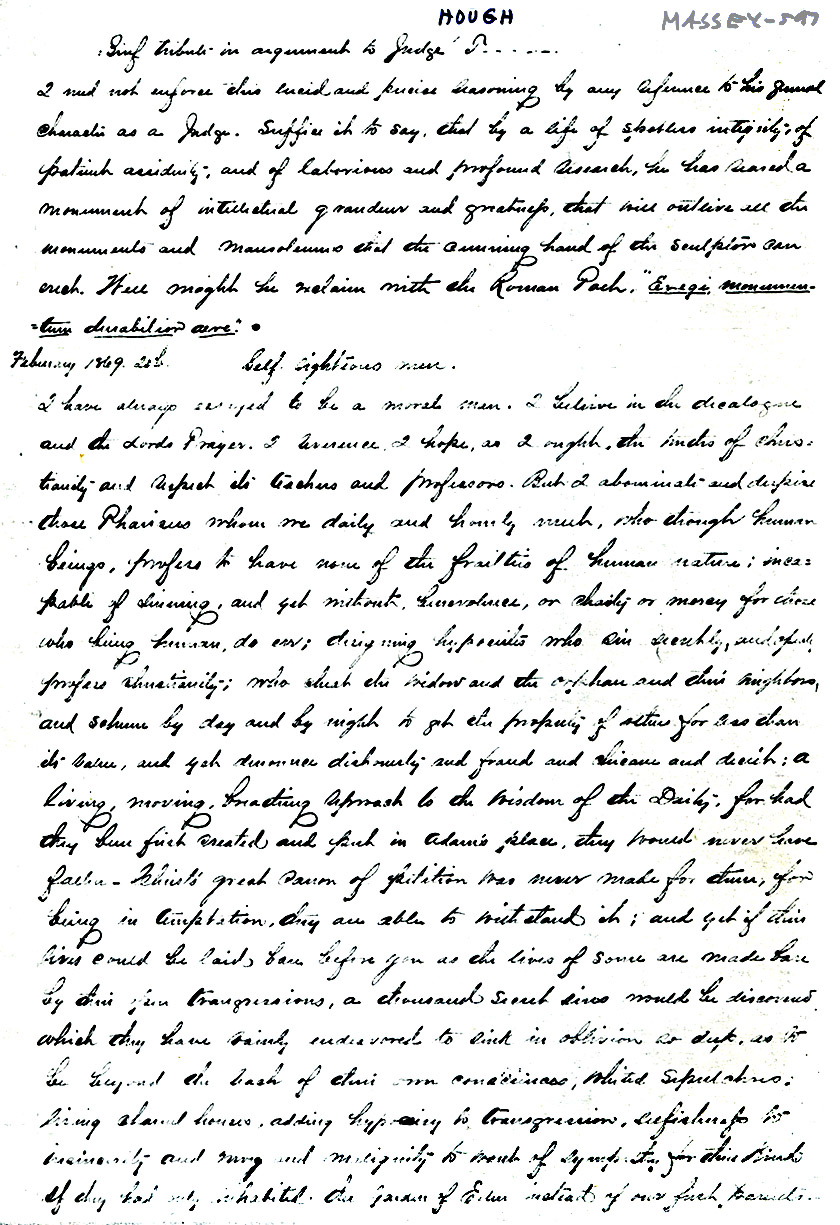 HOUGH MASSEY-597
Brief tribute in argument to Judge T- - - - - -
I need not enforce this lucid and precise reasoning by any reference to his general
character as a Judge. Suffice it to say, that by a life of spotless integrity, of
patient assiduity, and of laborious and profound research, he has reared a
monument of intellectual grandeur and greatness, that will outlive all the
monuments and mausoleums that the cunning hand of the sculptors can
erect. Well might he exclaim with the Roman Poet, "Exegi monumen-
=tum durabilior aere".
February 1869. Self righteous men.
I have always to be a moral man. I believe in the decalogue
and the Lords Prayer. I reverence, I hope, as I ought, the truths of Chris-
tianity and respect its teachers and professors. But I abominate and despise
those Pharisees whom we daily and hourly meet, who though human
beings, profess to have none of the frailties of human nature; inca=
pable of sinning, and yet without benevolence, or charity or mercy for those
who being human, do err; designing hypocrites who sin secretly, and openly
profess christianity; who cheat the widow and the orphan and their neighbors,
and scheme by day and by night to get the property of others for less than
its value, and yet denounce dishonesty and fraud and chicane and deceit; a
living, moving, breathing reproach to the wisdom of the Deity, for had
they been first created and put in Adam's place, they would never have
fallen - Christ's great of petition was never made for them, for
being in temptation, they are able to withstand it; and yet if their
lives could be laid bare before you as the lives of some are made bare
by their own transgressions, a thousand secret sins would be discovered
which they have vainly endeavored to sink in oblivion so deep, as to
be beyond the reach of their own consciences; Whited Sepulchres;
living charnel houses, adding hypocrisy to transgression, selfishness to
insincerity and envy and malignity to want of sympathy for their kind
If they had only inhabited the Garden of Eden instead of our first parents.